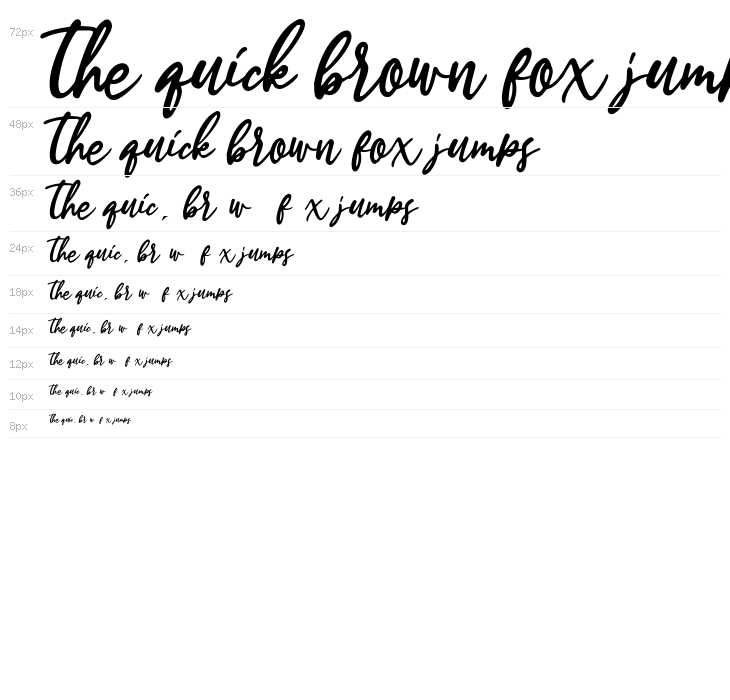 72px The quick brown fox jump
48px The quick brown fox jumps
36px The quic, br w f x jumps
24px The quic, br w f x jumps
18px The quic, br w f x jumps
14px The quic, br w f x jumps
12px The quic, br w f x jumps
10px The quic, br w f x jumps
8px The quic, br w f x jumps